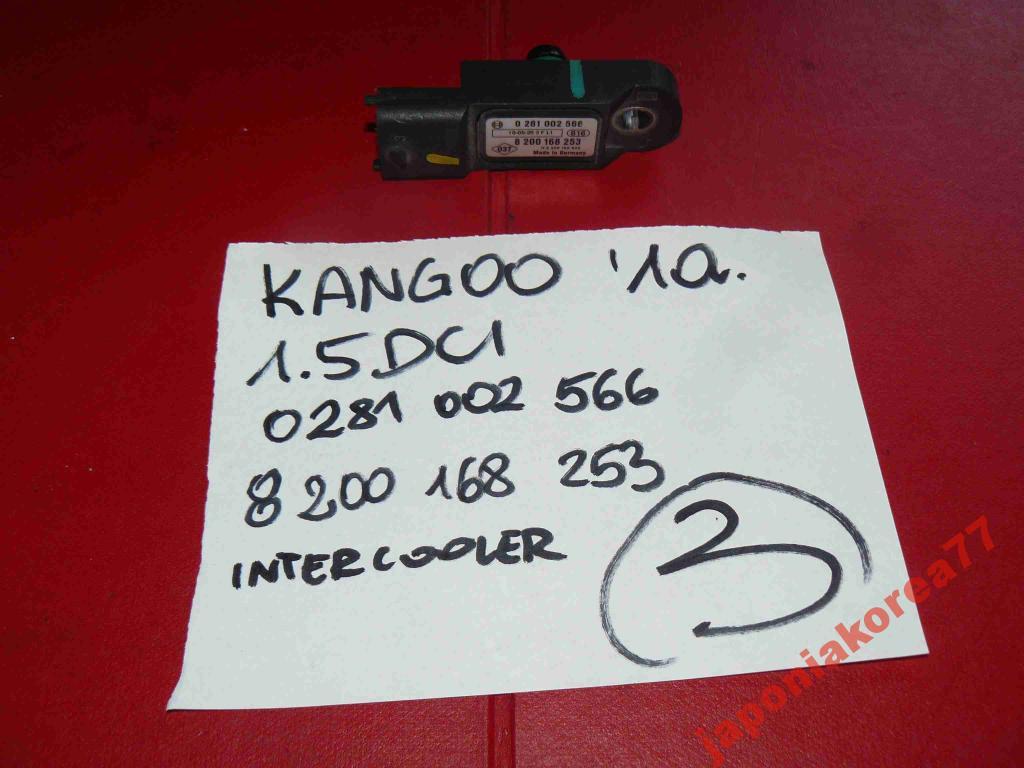 0 281 002 566
B16
8 200 168 253
037
Made in Germany
KANGOO '10.
1.5DCI
0281 002 566
8 200 168 253
INTERCOOLER
3
japoniakorea77